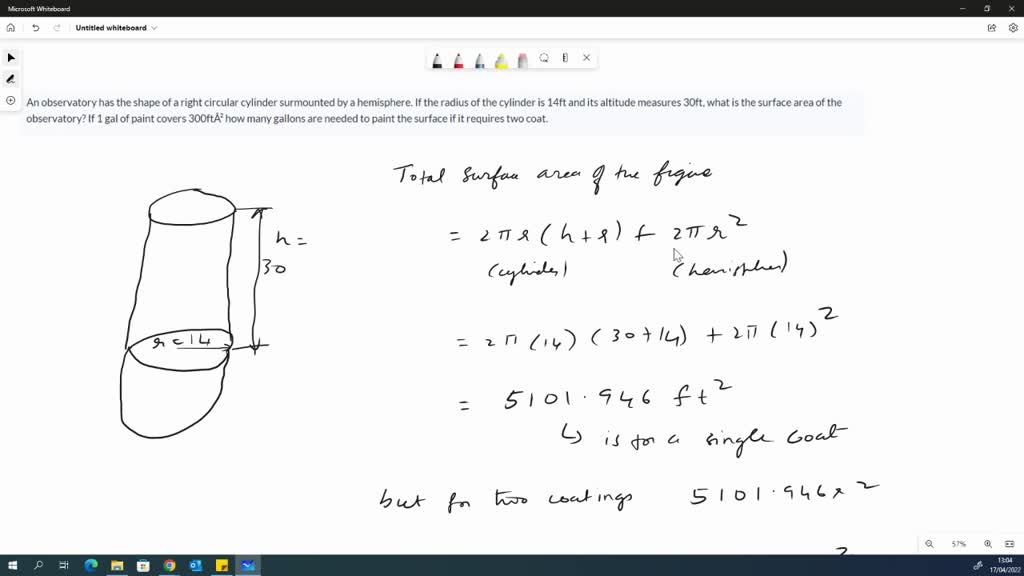 Microsoft Whiteboard
Untitled whiteboard
An observatory has the shape of a right circular cylinder surmounted by a hemisphere. If the radius of the cylinder is 14ft and its altitude measures 30ft, what is the surface area of the
observatory? If 1 gal of paint covers 300ftÂ² how many gallons are needed to paint the surface if it requires two coat.
Total surface area of the figure
h =
30
= 2πr(h+r) + 2πr²
(cylinder) (hemisphere)
r = 14
= 2π(14)(30+14) + 2π(14)²
= 5101.946 ft²
↳ is for a single coat
but for two coatings 5101.946 x 2
2
57%
13:04
17/04/2022